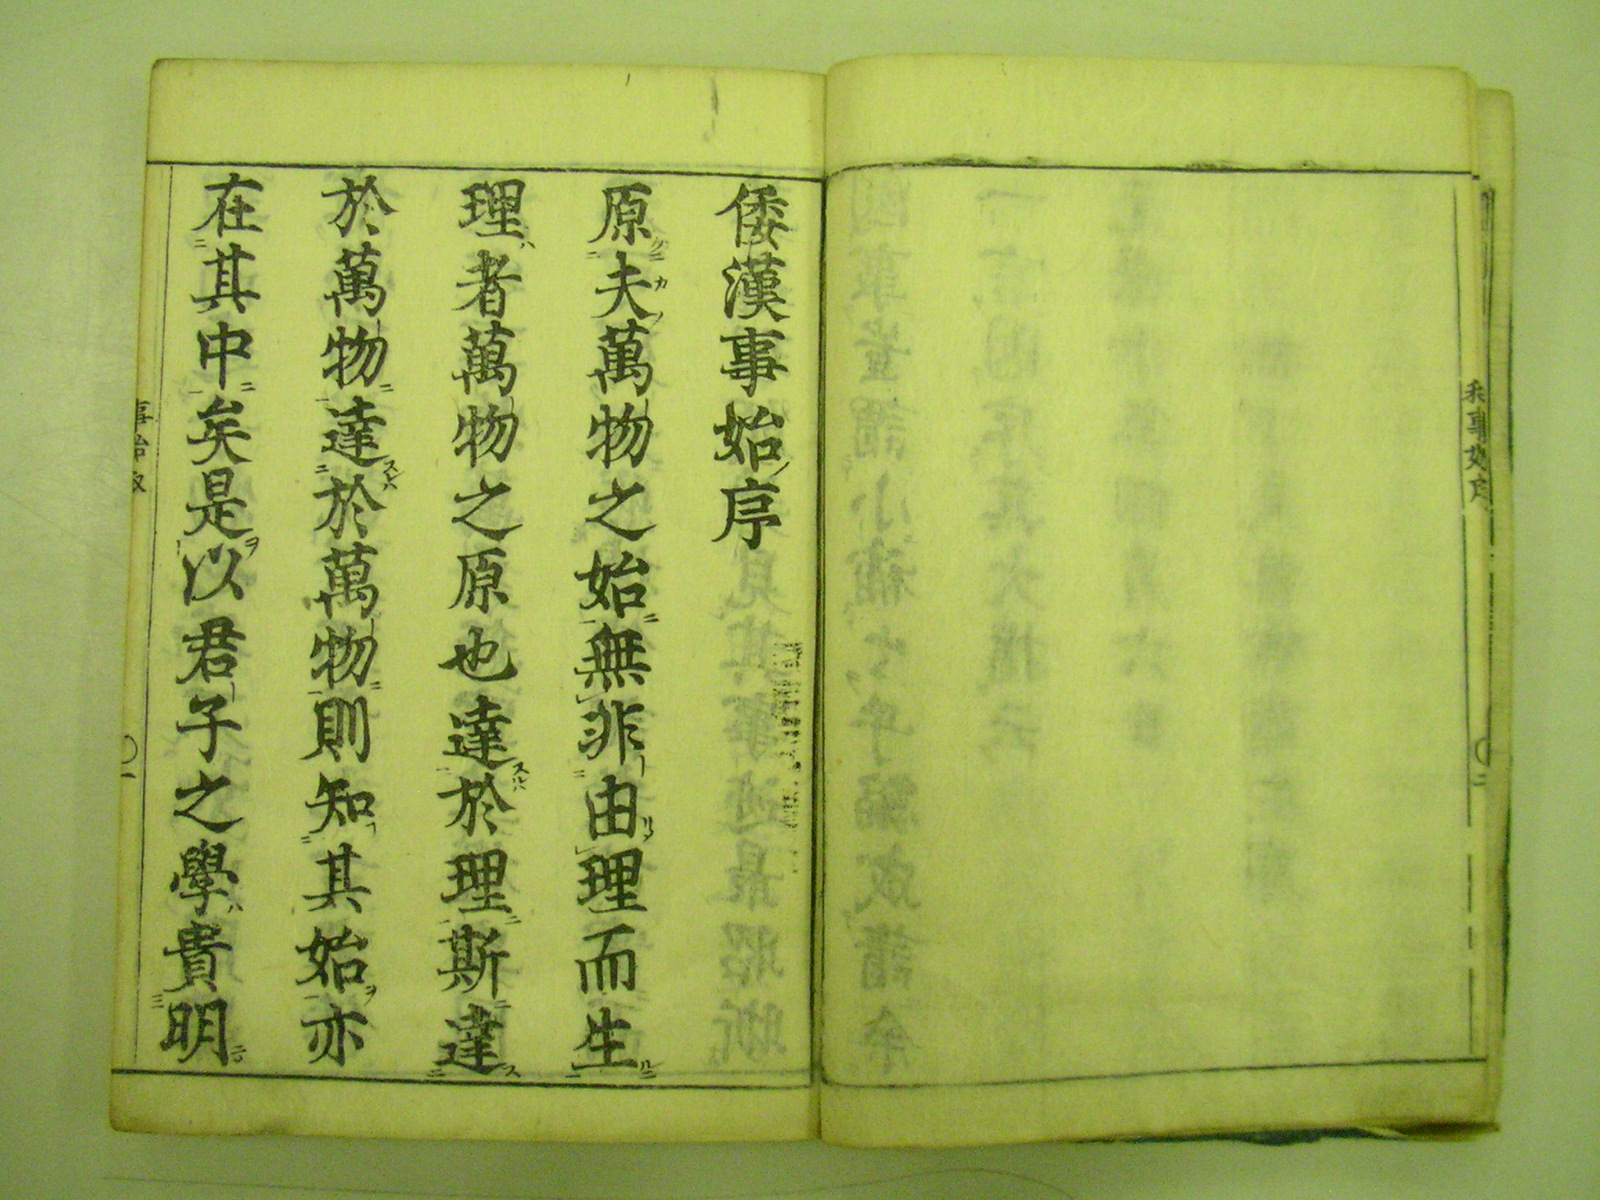 倭漢事始序
原夫萬物之始無非由理而生
理者萬物之原也達於理斯達
於萬物達於萬物則知其始亦
在其中矣是以君子之學貴明